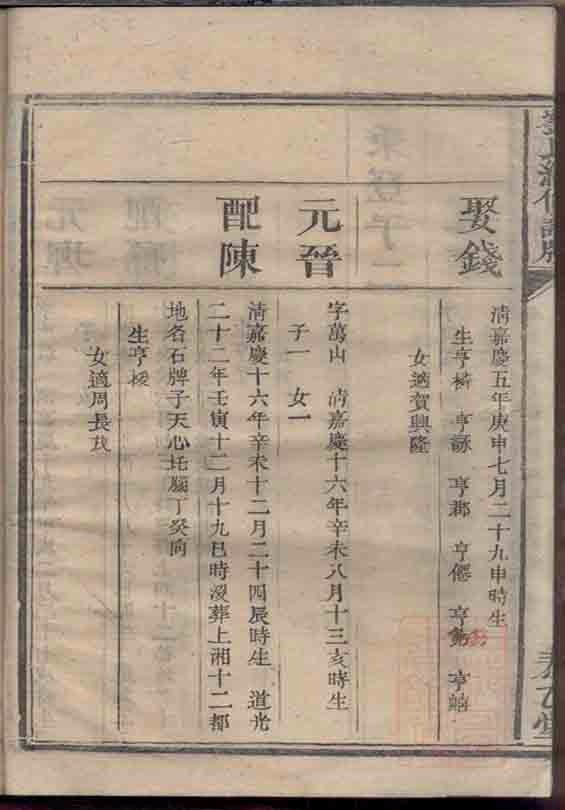 娶錢
清嘉慶五年庚申七月二十九申時生
生亨 亨詠 亨郡 亨僊 亨 亨
女適賀興隆
元晉
字萬山 清嘉慶十六年辛未八月十三亥時生
子一 女一
配陳
清嘉慶十六年辛未十二月二十四辰時生 道光
二十二年壬寅十二月十九巳時沒葬上湘十二都
地名石牌子天心圫腦丁癸向
生亨
女適周長